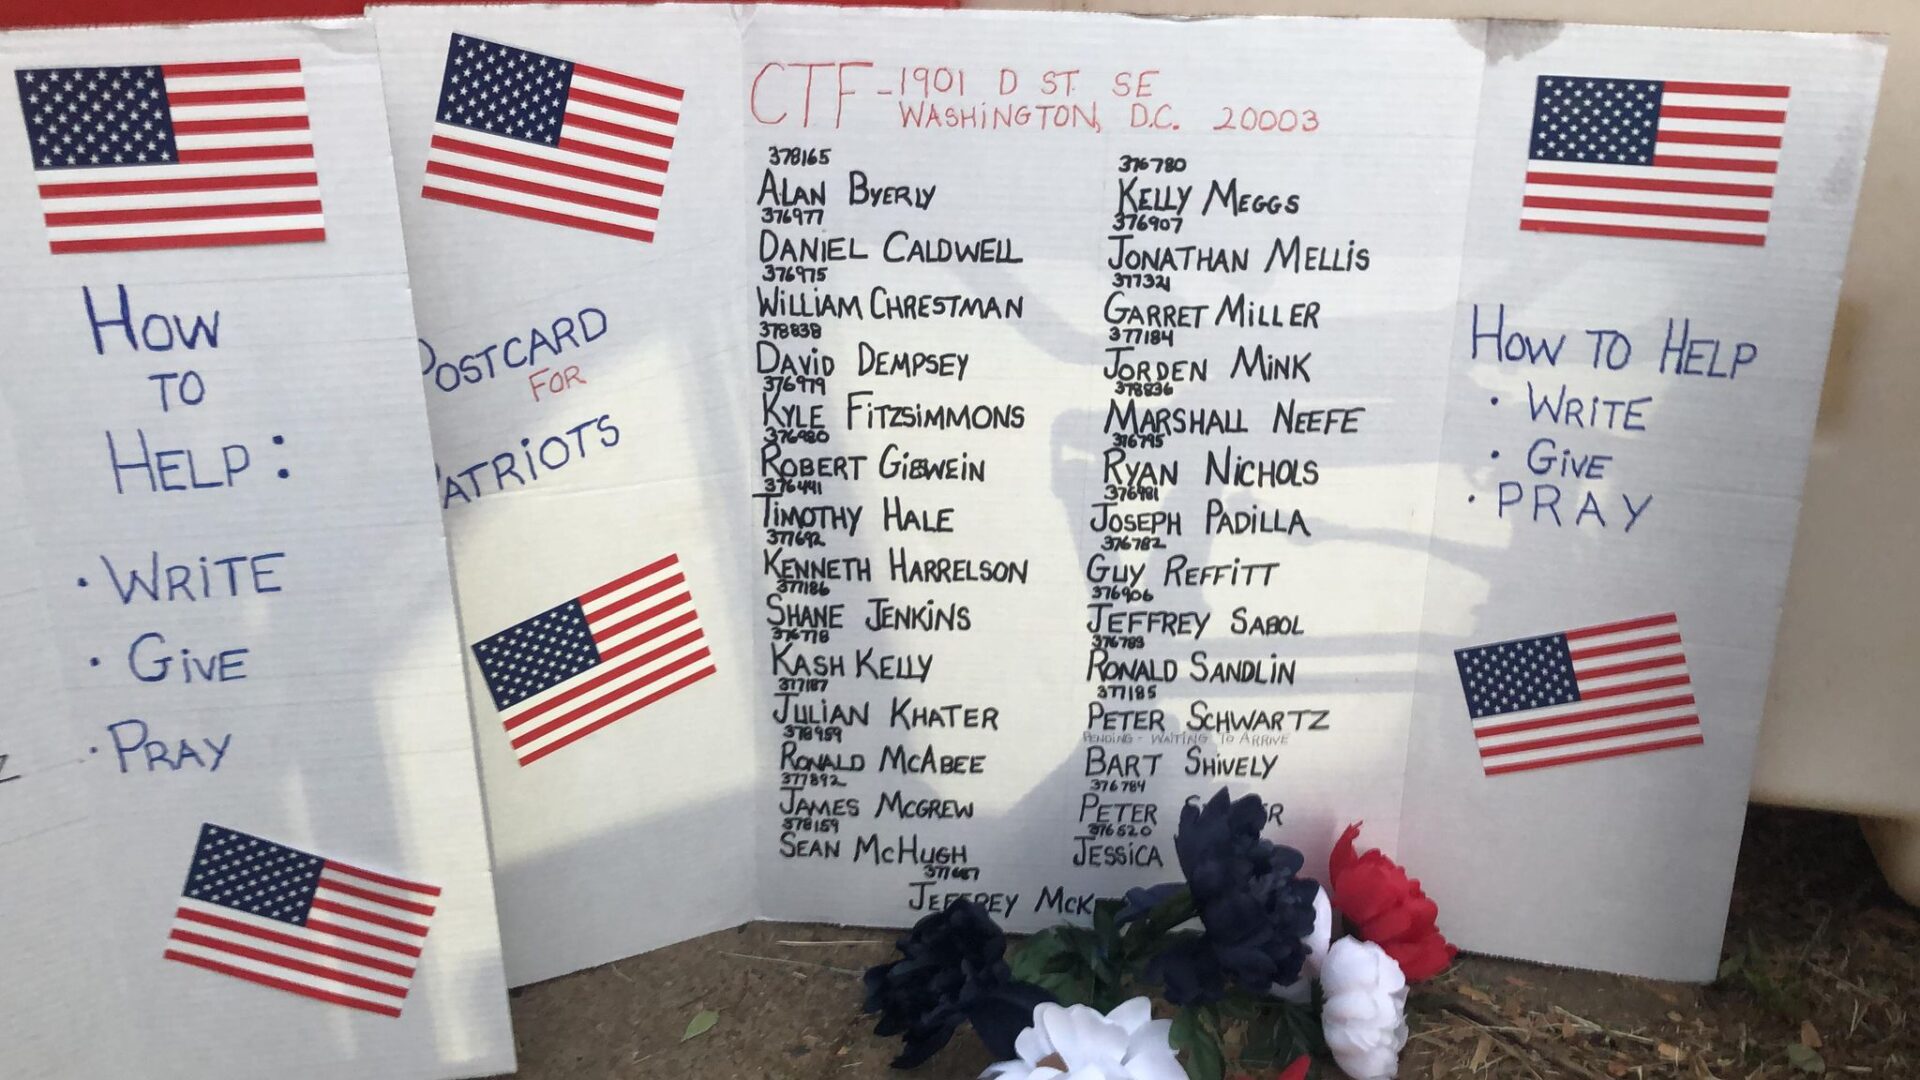 HOW
TO
HELP:
• WRITE
• GIVE
• PRAY
POSTCARD
FOR
PATRIOTS
CTF - 1901 D ST. SE
WASHINGTON, D.C. 20003
378165
ALAN BYERLY
376977
DANIEL CALDWELL
376975
WILLIAM CHRESTMAN
378838
DAVID DEMPSEY
376979
KYLE FITZSIMMONS
376980
ROBERT GIEWEIN
376441
TIMOTHY HALE
377692
KENNETH HARRELSON
377186
SHANE JENKINS
376778
KASH KELLY
377187
JULIAN KHATER
378959
RONALD MCABEE
377892
JAMES MCGREW
378159
SEAN MCHUGH
377687
JEFFREY MCK
376780
KELLY MEGGS
376907
JONATHAN MELLIS
377321
GARRET MILLER
377184
JORDEN MINK
378836
MARSHALL NEEFE
376795
RYAN NICHOLS
376981
JOSEPH PADILLA
376782
GUY REFFITT
376906
JEFFREY SABOL
376783
RONALD SANDLIN
377185
PETER SCHWARTZ
PENDING - WAITING TO ARRIVE
BART SHIVELY
376784
PETER
376520
JESSICA
HOW TO HELP
• WRITE
• GIVE
• PRAY